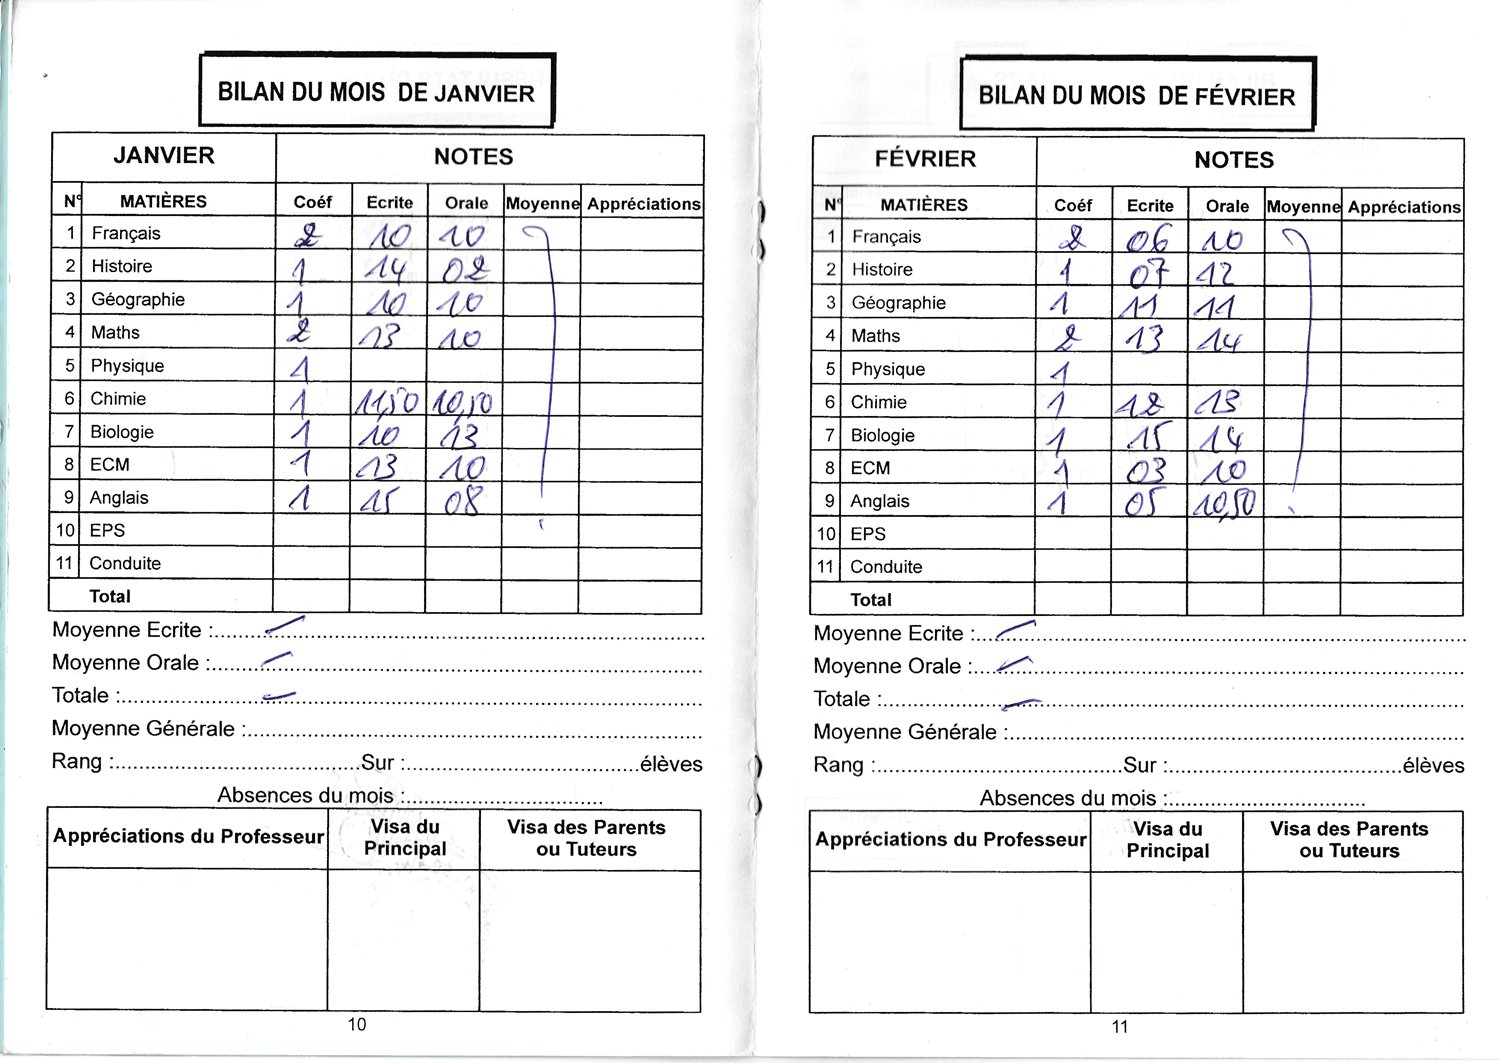 BILAN DU MOIS DE JANVIER
JANVIER NOTES
N° MATIÈRES Coéf Ecrite Orale Moyenne Appréciations
1 Français 2 10 10
2 Histoire 1 14 02
3 Géographie 1 10 10
4 Maths 2 13 10
5 Physique 1
6 Chimie 1 11,50 10,50
7 Biologie 1 10 13
8 ECM 1 13 10
9 Anglais 1 15 08
10 EPS
11 Conduite
Total
Moyenne Ecrite :
Moyenne Orale :
Totale :
Moyenne Générale :
Rang : Sur : élèves
Absences du mois :
Appréciations du Professeur Visa du Principal Visa des Parents ou Tuteurs
10
BILAN DU MOIS DE FÉVRIER
FÉVRIER NOTES
N° MATIÈRES Coéf Ecrite Orale Moyenne Appréciations
1 Français 2 06 10
2 Histoire 1 07 12
3 Géographie 1 11 11
4 Maths 2 13 14
5 Physique 1
6 Chimie 1 12 13
7 Biologie 1 15 14
8 ECM 1 03 10
9 Anglais 1 05 10,50
10 EPS
11 Conduite
Total
Moyenne Ecrite :
Moyenne Orale :
Totale :
Moyenne Générale :
Rang : Sur : élèves
Absences du mois :
Appréciations du Professeur Visa du Principal Visa des Parents ou Tuteurs
11